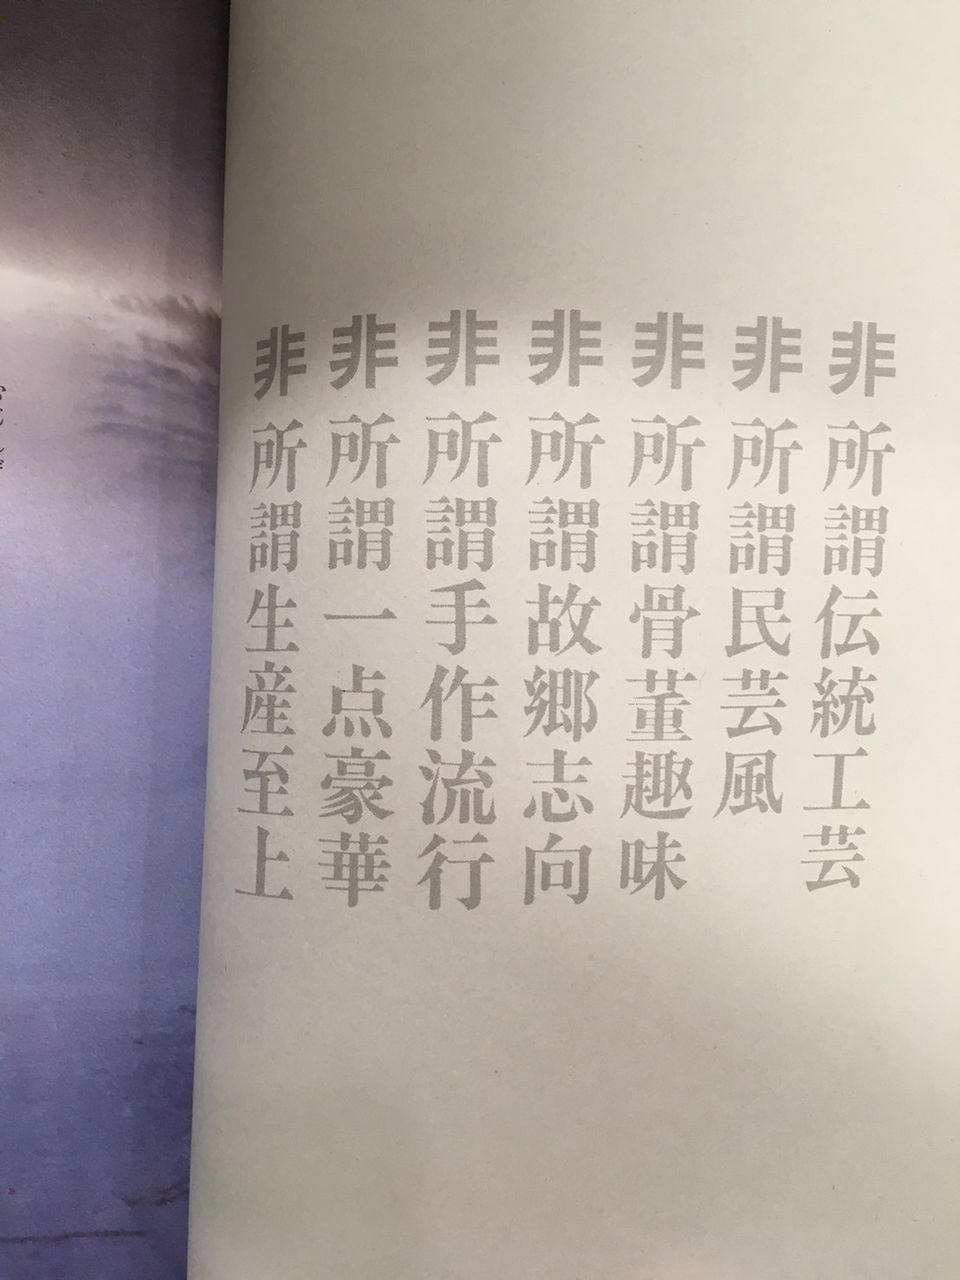 非所謂伝統工芸
非所謂民芸風
非所謂骨董趣味
非所謂故郷志向
非所謂手作流行
非所謂一点豪華
非所謂生産至上